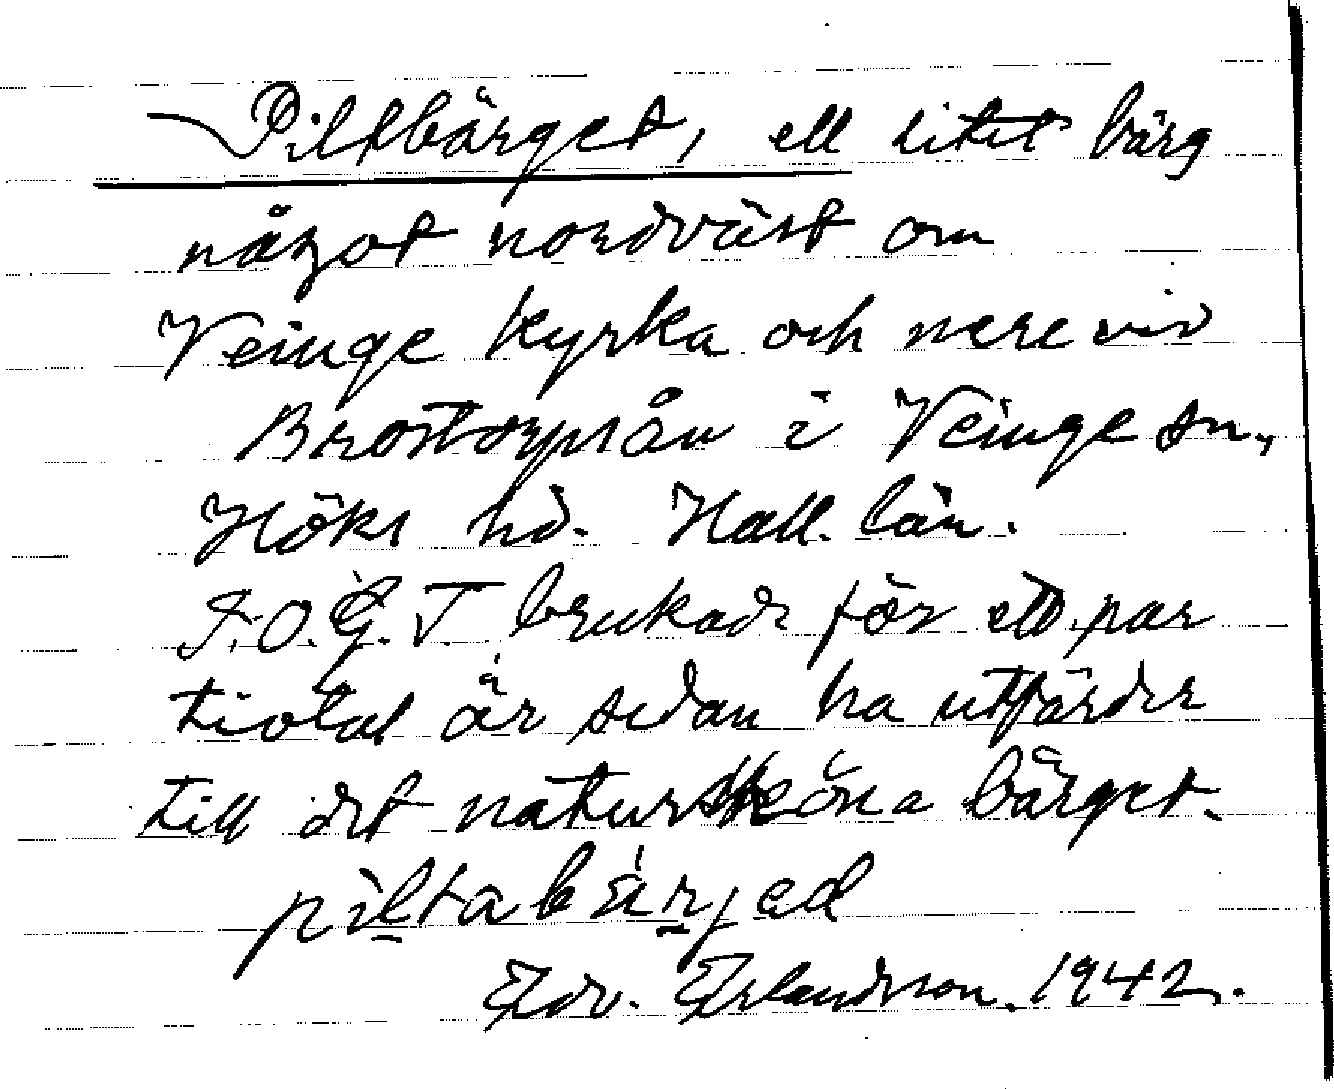 Piltbärget, ett litet bärg
något nordväst om
Veinge kyrka och nere vid
Brostorpsån i Veinge sn,
Höks hd. Hall. län.
I.O.G.T. brukade för ett par
tiotal år sedan ha utfärder
till det natursköna bärget.
piltabärjed
Edv. Erlandsson. 1942.